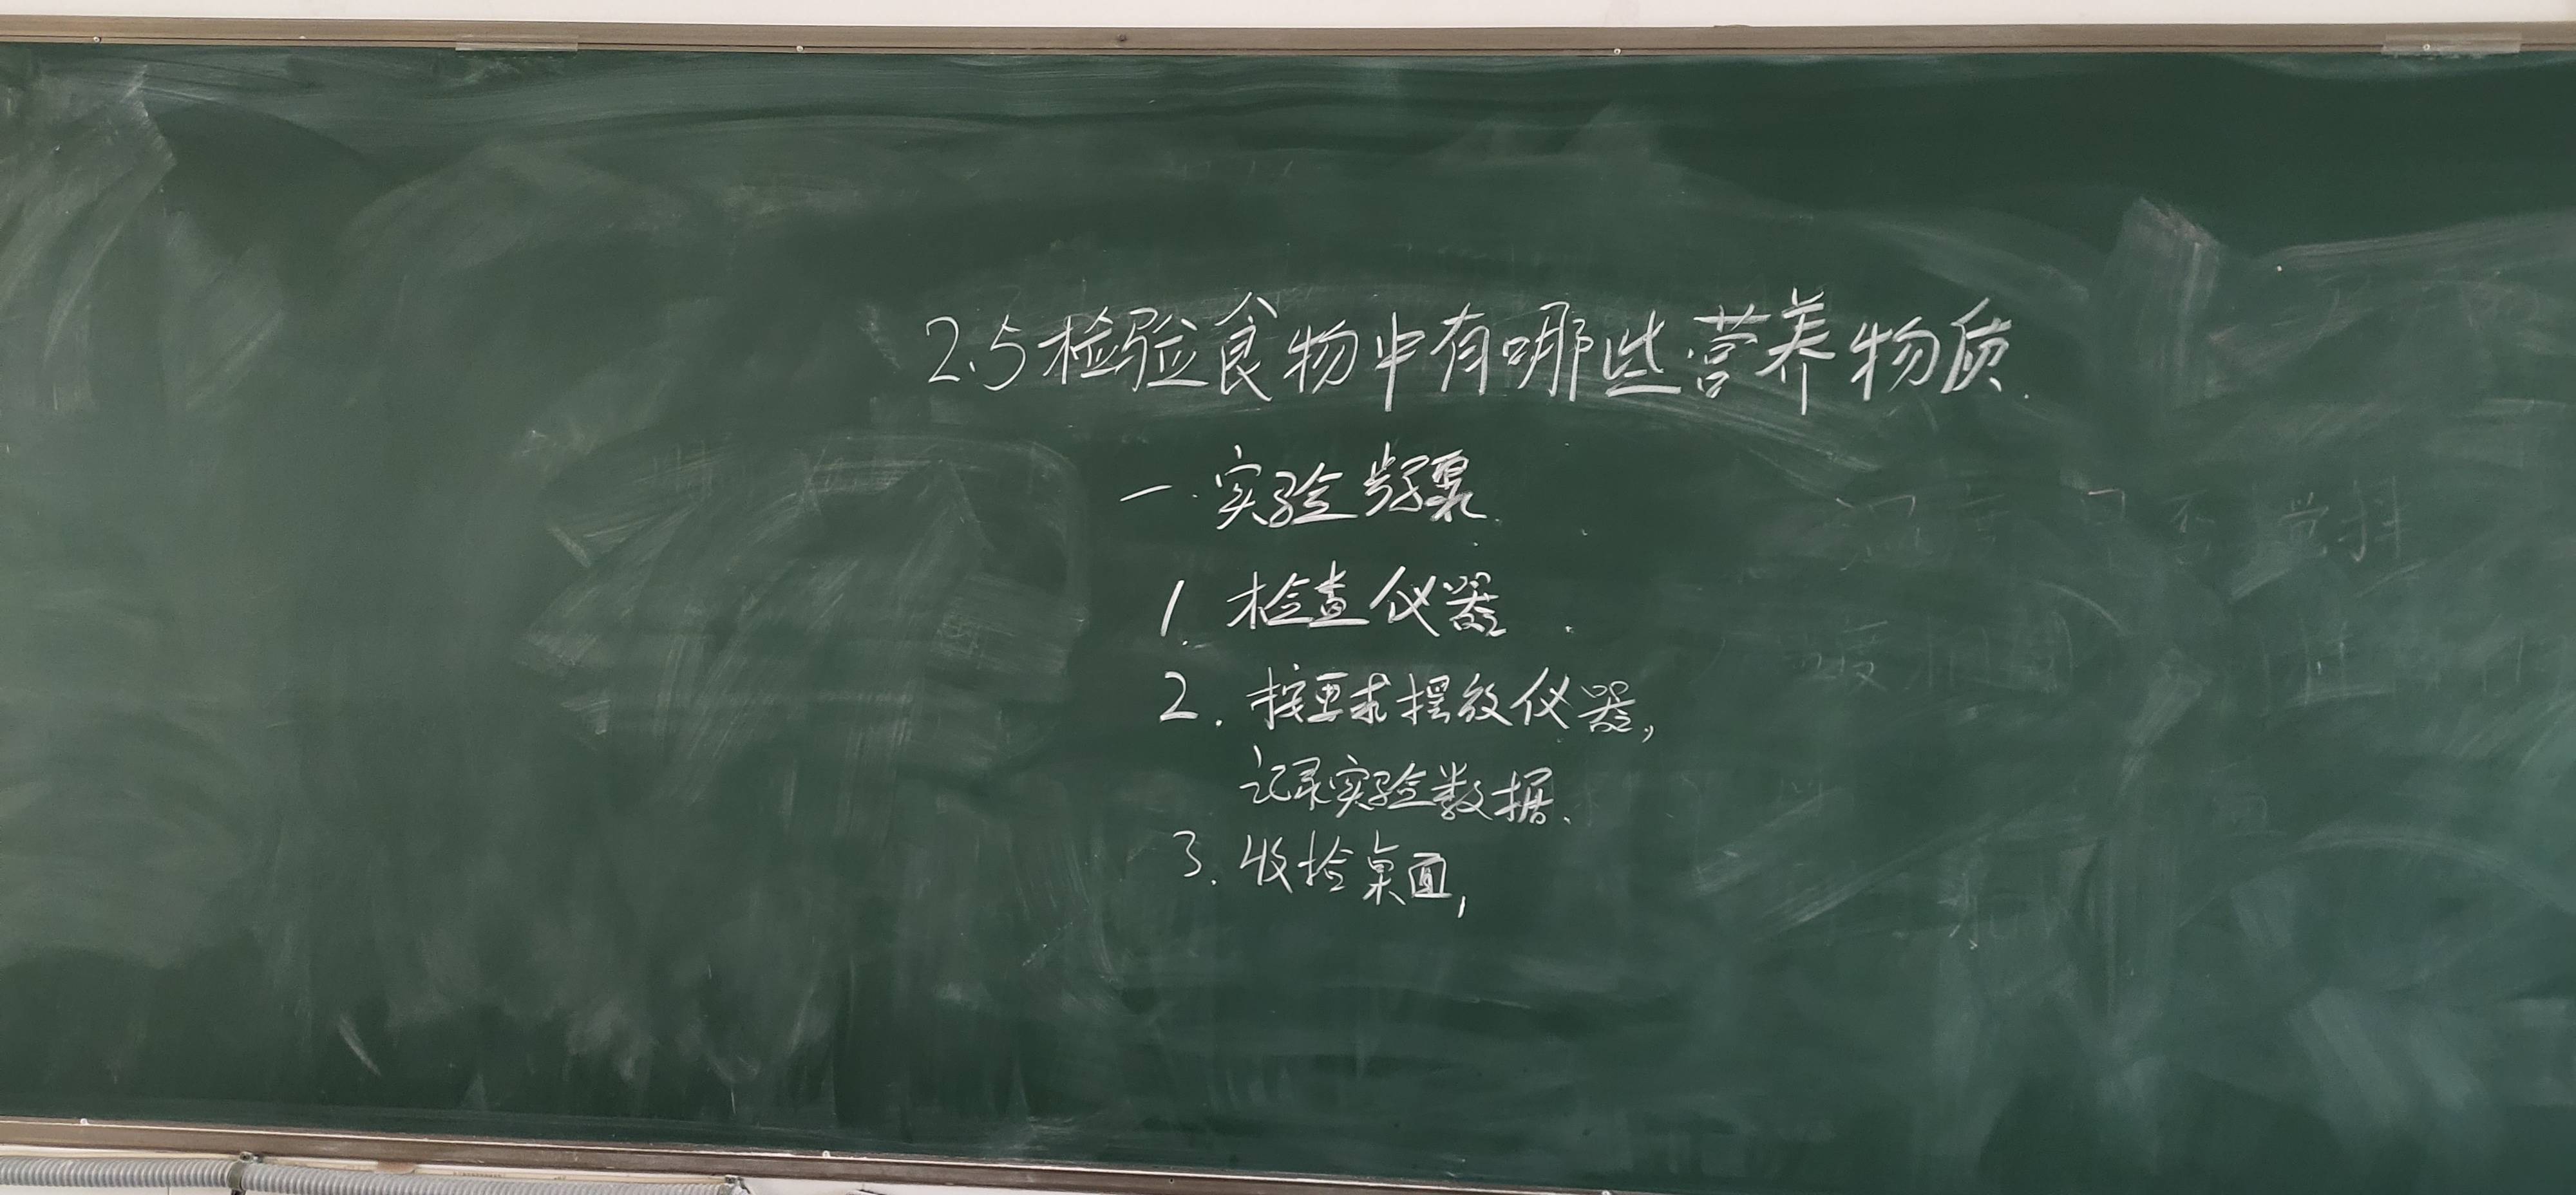 2.5检验食物中有哪些营养物质.
一.实验步骤
1.检查仪器.
2.按要求摆放仪器,
记录实验数据.
3.收捡桌面,